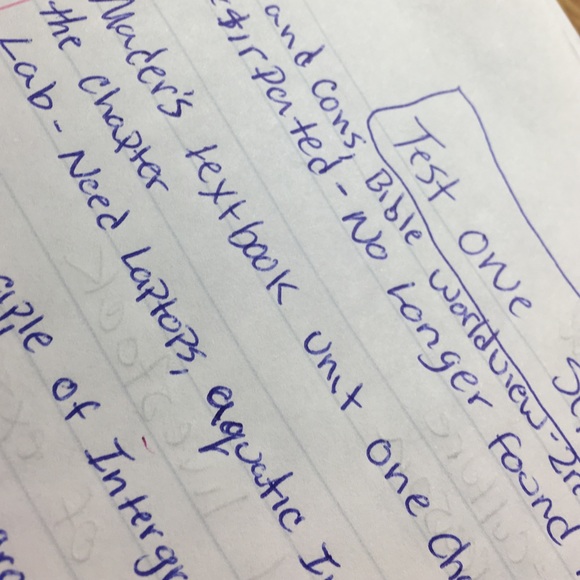 Test one
and cons, Bible worldview-2n
stirpated - No Longer found
Mader's textbook unit one ch
the chapter
Lab - Need Laptops, aquatic I
ciple of Intergr